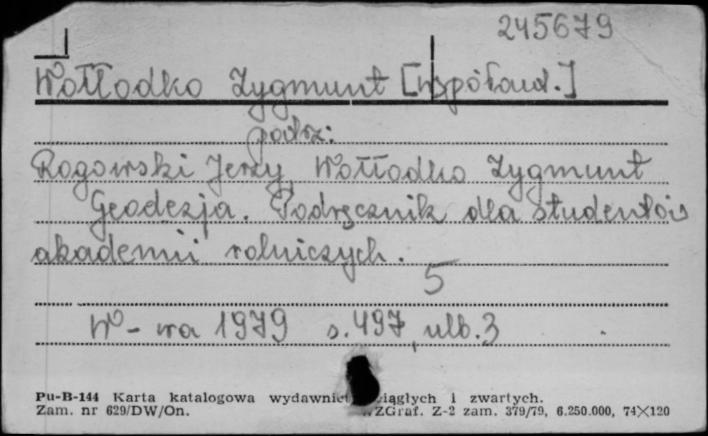 245679
Wołłodko Zygmunt [współaut.]
podrz:
Rogowski Jerzy, Wołłodko Zygmunt
Geodezja. Podręcznik dla studentów
akademii rolniczych.
5
W-wa 1979 s.497, nlb.3
Pu-B-144 Karta katalogowa wydawnict ciągłych i zwartych.
Zam. nr 629/DW/On. WZGraf. Z-2 zam. 379/79, 6.250.000, 74×120